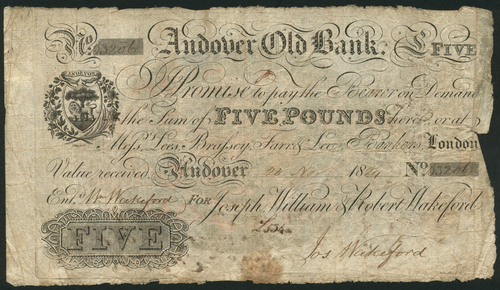 No. 13206 Andover Old Bank. £ FIVE
ANDEVOR
I Promise to pay the Bearer on Demand
the Sum of FIVE POUNDS here or at
Messrs. Lees, Brassey, Farr & Lee, Bankers London
Value received, Andover 24 Nov 1824 No. 13206
Entd. Wm Wakeford FOR Joseph, William & Robert Wakeford
FIVE
Jos Wakeford